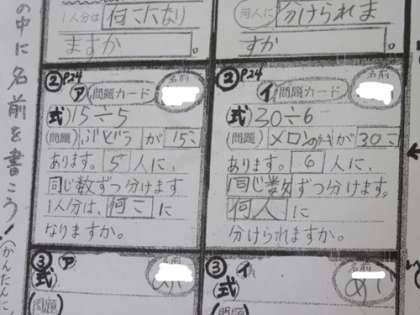 の中に名前を書こう!
(かんたんに、
1人分は何こになり
ますか。
何人に分けられま
すか。
② P24
㋐ 問題カード 名前
式 15÷5
(問題) ぶどうが15こ
あります。5人に、
同じ数ずつ分けます
1人分は、何こに
なりますか。
② P24
㋑ 問題カード 名前
式 30÷6
(問題) が30こ
あります。6人に、
同じ数ずつ分けます。
何人に
分けられますか。
③ ㋐ 名前
式
(問題)
③ ㋑ 名前
式
(問題)